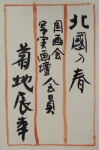 北國の春
国画会
写実画壇会員
菊地辰幸